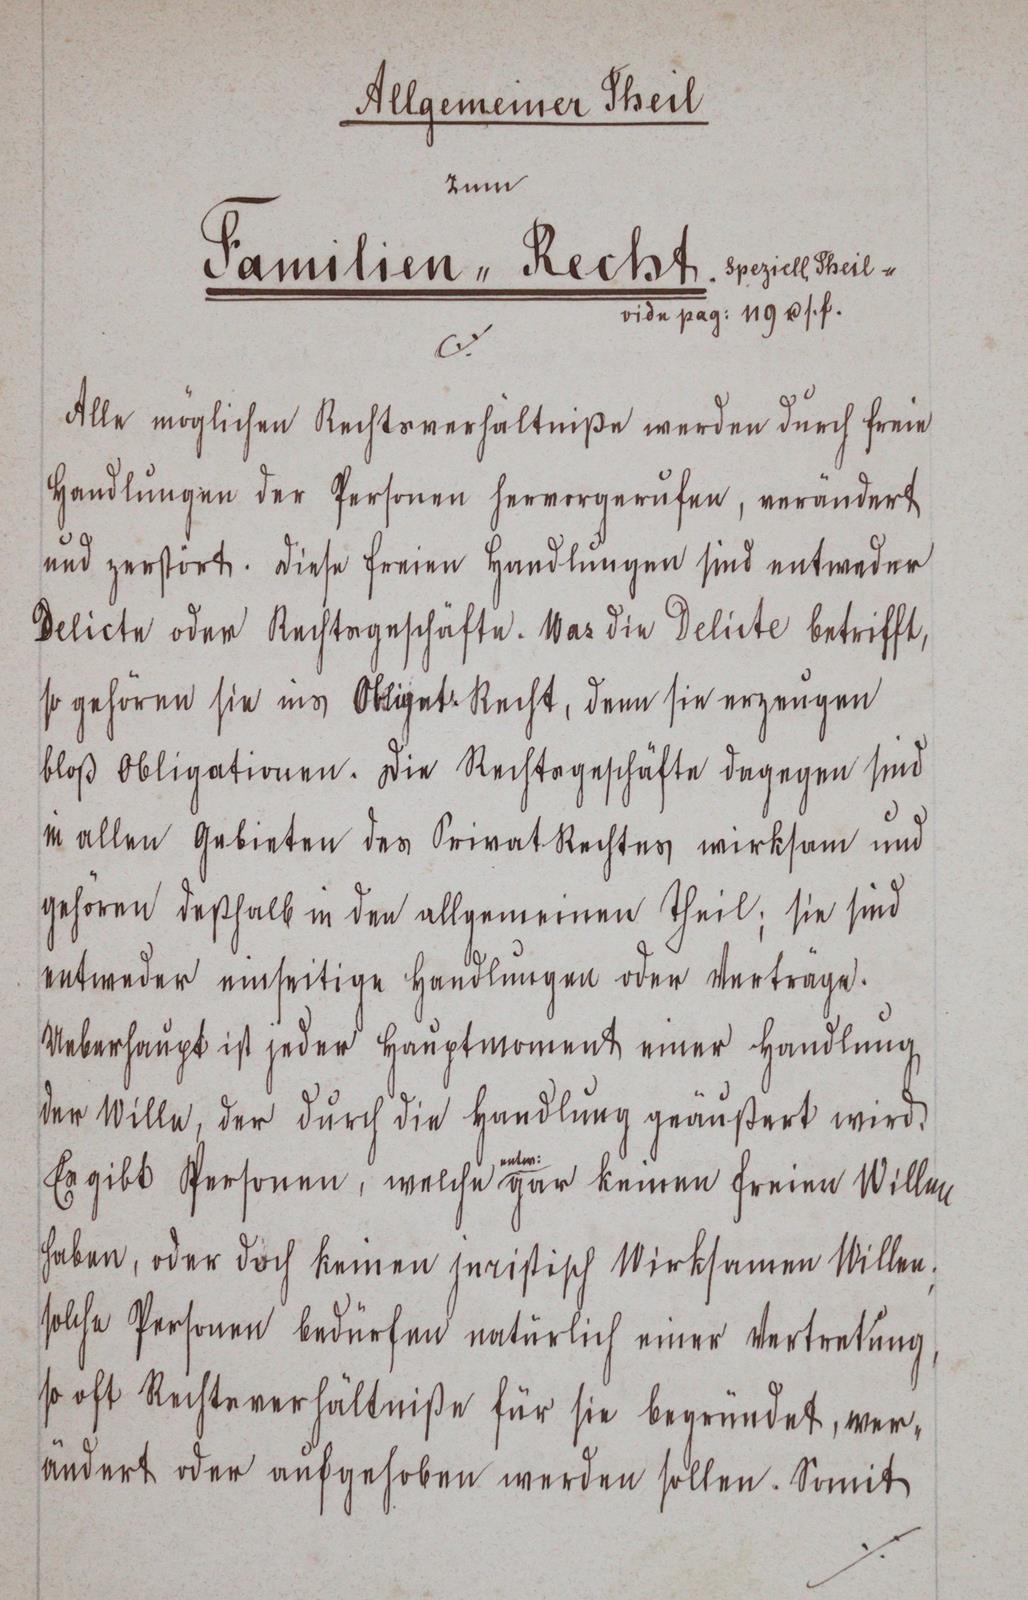 Allgemeiner Theil
zum
Familien „ Recht. speziell. Theil „
vide pag: 119 u s. f.
Alle möglichen Rechtsverhältniße werden durch freie
Handlungen der Personen hervorgerufen, verändert
und zerstört. Diese freien Handlungen sind entweder
Delicte oder Rechtsgeschäfte. Was die Delicte betrifft,
so gehören sie ins Obligat: Recht, denn sie erzeugen
bloß Obligationen. Die Rechtsgeschäfte dagegen sind
in allen Gebieten des PrivatRechtes wirksam und
gehören deßhalb in den allgemeinen Theil; sie sind
entweder einseitige Handlungen oder Verträge.
Ueberhaupt ist jeder Hauptmoment einer Handlung
der Wille, der durch die Handlung geäußert wird.
Es gibt Personen, welche entw: gar keinen freien Willen
haben, oder doch keinen juristisch Wirksamen Willen;
solche Personen bedürfen natürlich einer Vertretung,
so oft Rechtsverhältniße für sie begründet, ver„
ändert oder aufgehoben werden sollen. Somit